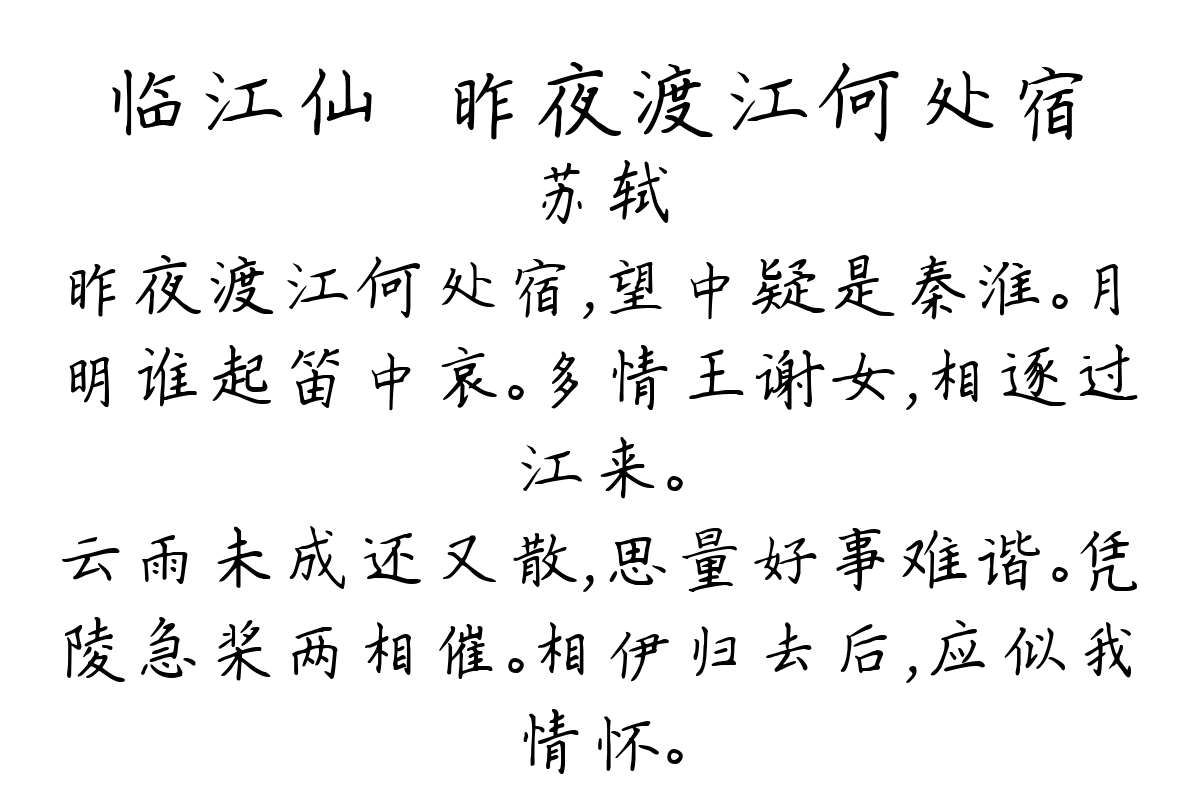 临江仙 昨夜渡江何处宿
苏轼
昨夜渡江何处宿,望中疑是秦淮。月
明谁起笛中哀。多情王谢女,相逐过
江来。
云雨未成还又散,思量好事难谐。凭
陵急桨两相催。相伊归去后,应似我
情怀。